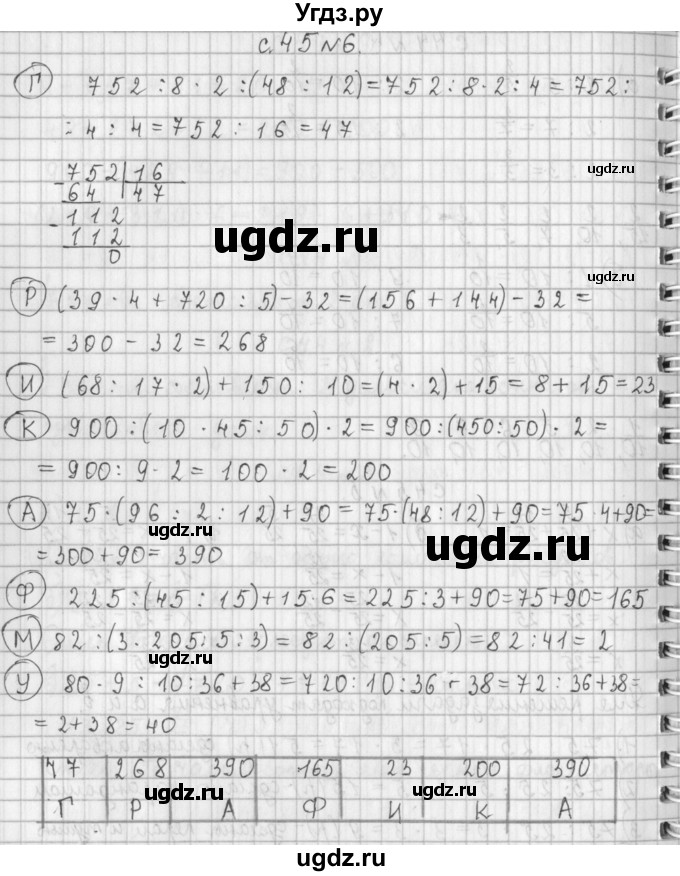 Угдз.ру
с.45 №6.
П 752 : 8 · 2 : (48 : 12) = 752 : 8 · 2 : 4 = 752 :
: 4 : 4 = 752 : 16 = 47
ugdz.ru
- 752 | 16
64 | 47
- 112
112
0
ugdz.ru
ugdz.ru
Р (39 · 4 + 720 : 5) - 32 = (156 + 144) - 32 =
= 300 - 32 = 268
И (68 : 17 · 2) + 150 : 10 = (4 · 2) + 15 = 8 + 15 = 23
К 900 : (10 · 45 : 50) · 2 = 900 : (450 : 50) · 2 =
= 900 : 9 · 2 = 100 · 2 = 200
А 75 · (96 : 2 : 12) + 90 = 75 · (48 : 12) + 90 = 75 · 4 + 90 =
ugdz.ru
= 300 + 90 = 390
ugdz.ru
Ф 225 : (45 : 15) + 15 · 6 = 225 : 3 + 90 = 75 + 90 = 165
М 82 : (3 · 205 : 5 : 3) = 82 : (205 : 5) = 82 : 41 = 2
ugdz.ru
У 80 · 9 : 10 : 36 + 38 = 720 : 10 : 36 + 38 = 72 : 36 + 38 =
= 2 + 38 = 40
47 268 390 165 23 200 390
ugdz.ru ugdz.ru
Г Р А Ф И К А
ugdz.ru